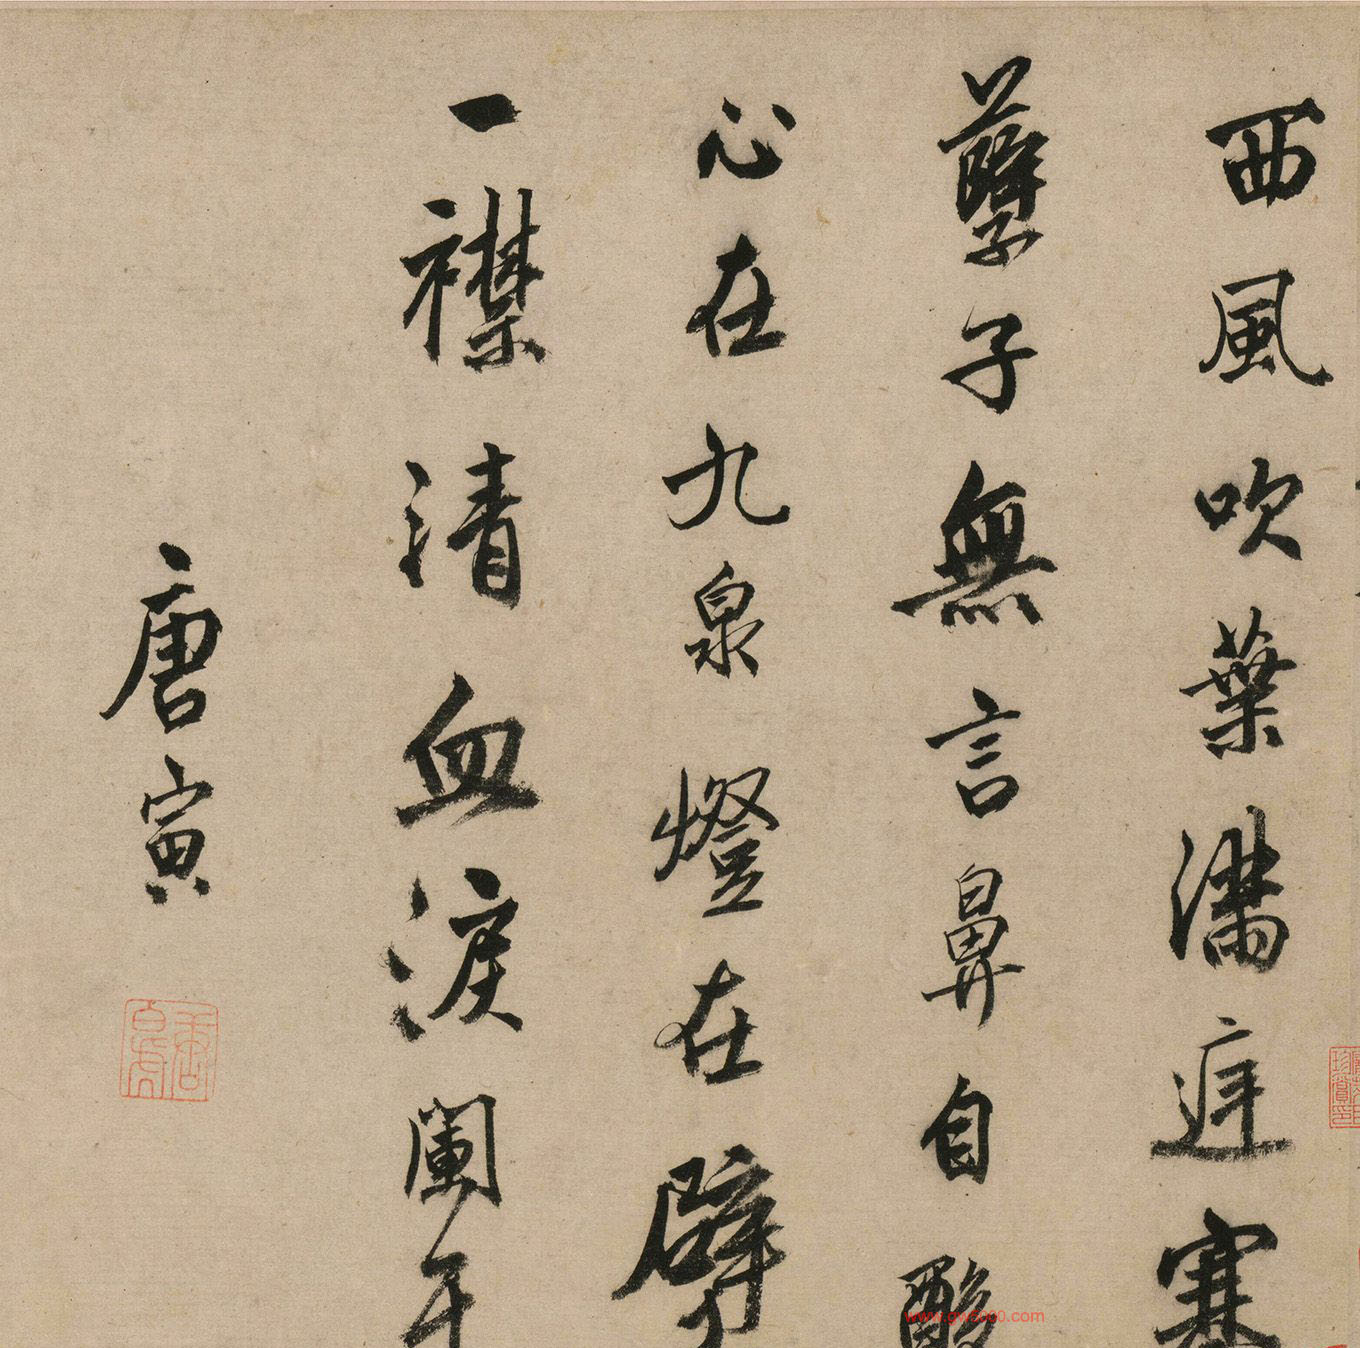 西風吹葉滿庭寒
孽子無言鼻自酸
心在九泉燈在壁
一襟清血淚闌干
唐寅
唐白虎
www.gw5000.com